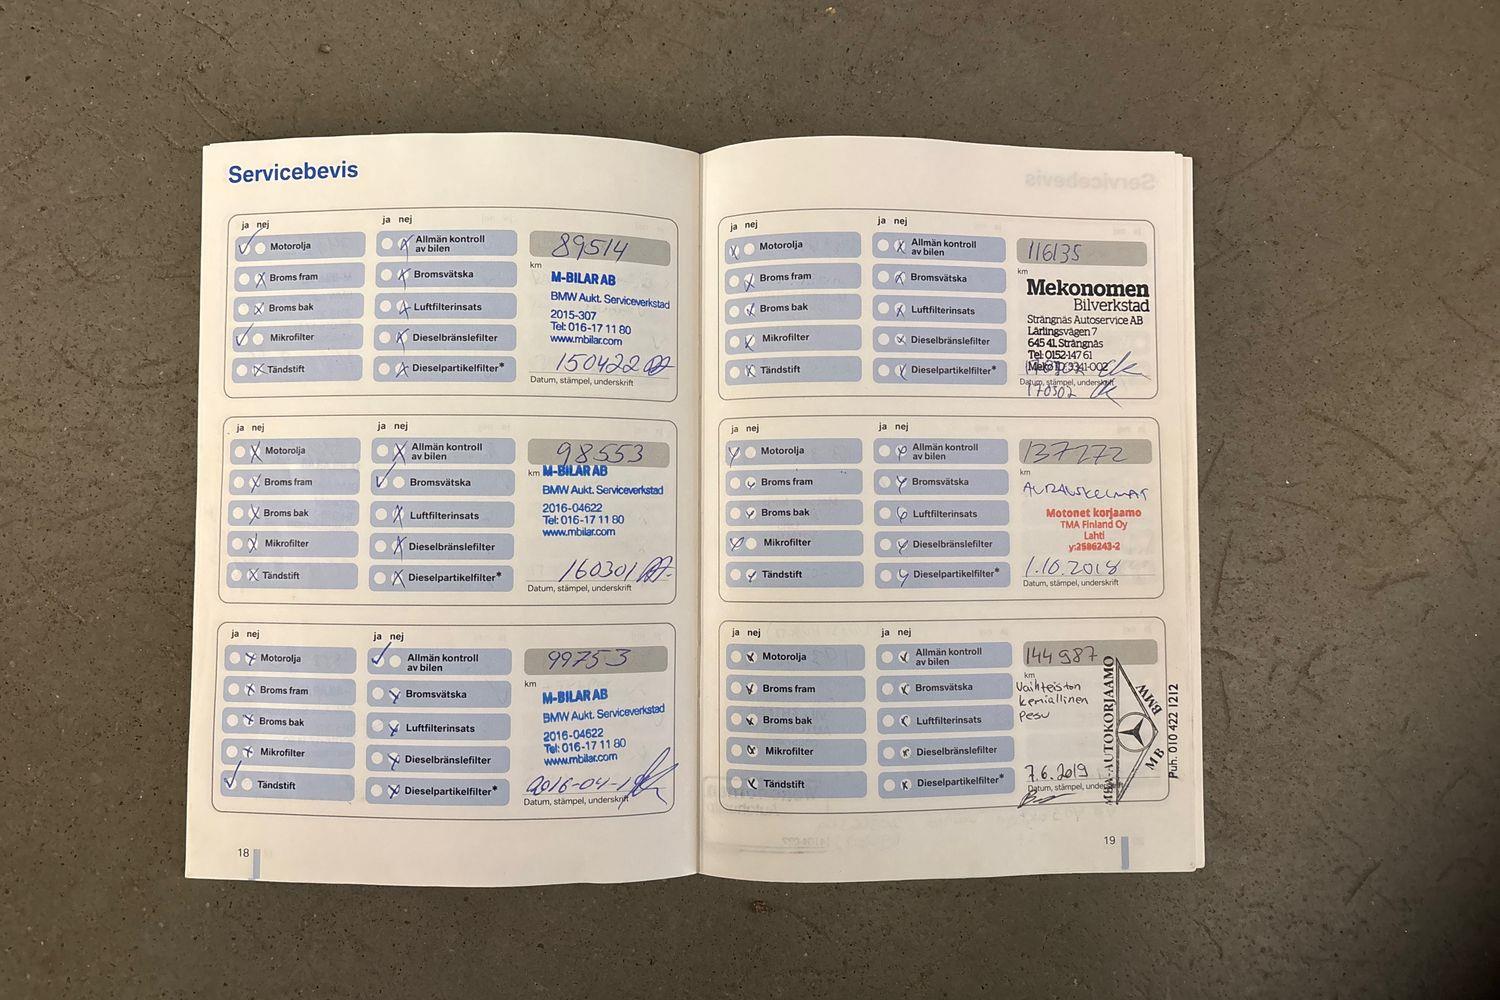 Servicebevis
ja nej
ja nej
Motorolja
Broms fram
Broms bak
Mikrofilter
Tändstift
Allmän kontroll
av bilen
Bromsvätska
Luftfilterinsats
Dieselbränslefilter
Dieselpartikelfilter*
89514
km
M-BILAR AB
BMW Aukt. Serviceverkstad
2015-307
Tel: 016-17 11 80
www.mbilar.com
150422
Datum, stämpel, underskrift
ja nej
ja nej
Motorolja
Broms fram
Broms bak
Mikrofilter
Tändstift
Allmän kontroll
av bilen
Bromsvätska
Luftfilterinsats
Dieselbränslefilter
Dieselpartikelfilter*
98553
km
M-BILAR AB
BMW Aukt. Serviceverkstad
2016-04622
Tel: 016-17 11 80
www.mbilar.com
160301
Datum, stämpel, underskrift
ja nej
ja nej
Motorolja
Broms fram
Broms bak
Mikrofilter
Tändstift
Allmän kontroll
av bilen
Bromsvätska
Luftfilterinsats
Dieselbränslefilter
Dieselpartikelfilter*
99753
km
M-BILAR AB
BMW Aukt. Serviceverkstad
2016-04622
Tel: 016-17 11 80
www.mbilar.com
Datum, stämpel, underskrift
18
ja nej
ja nej
Motorolja
Broms fram
Broms bak
Mikrofilter
Tändstift
Allmän kontroll
av bilen
Bromsvätska
Luftfilterinsats
Dieselbränslefilter
Dieselpartikelfilter*
116135
km
Mekonomen
Bilverkstad
Strängnäs Autoservice AB
Lärlingsvägen 7
645 41 Strängnäs
Tel: 0152-147 61
Meko ID 9341-002
Datum, stämpel, underskrift
170302
ja nej
ja nej
Motorolja
Broms fram
Broms bak
Mikrofilter
Tändstift
Allmän kontroll
av bilen
Bromsvätska
Luftfilterinsats
Dieselbränslefilter
Dieselpartikelfilter*
137272
km
Motonet korjaamo
TMA Finland Oy
Lahti
y:2586243-2
1.10.2018
Datum, stämpel, underskrift
ja nej
ja nej
Motorolja
Broms fram
Broms bak
Mikrofilter
Tändstift
Allmän kontroll
av bilen
Bromsvätska
Luftfilterinsats
Dieselbränslefilter
Dieselpartikelfilter*
144987
km
Vaihteiston
kemiallinen
pesu
7.6.2019
Datum, stämpel, underskrift
MBA-AUTOKORJAAMO
BMW
MB
Puh. 010 422 1212
19